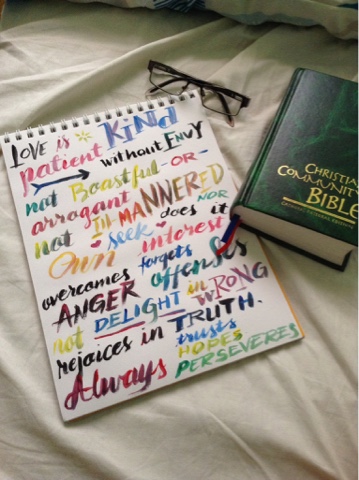 LOVE is patient KIND
without ENVY
not Boastful -OR-
arrogant ILL-MANNERED
not seek does it NOR
Own interest
overcomes forgets
ANGER offenses
not DELIGHT in WRONG
rejoices in TRUTH.
trusts
HOPES
Always PERSEVERES
CHRISTIAN
COMMUNITY
BIBLE